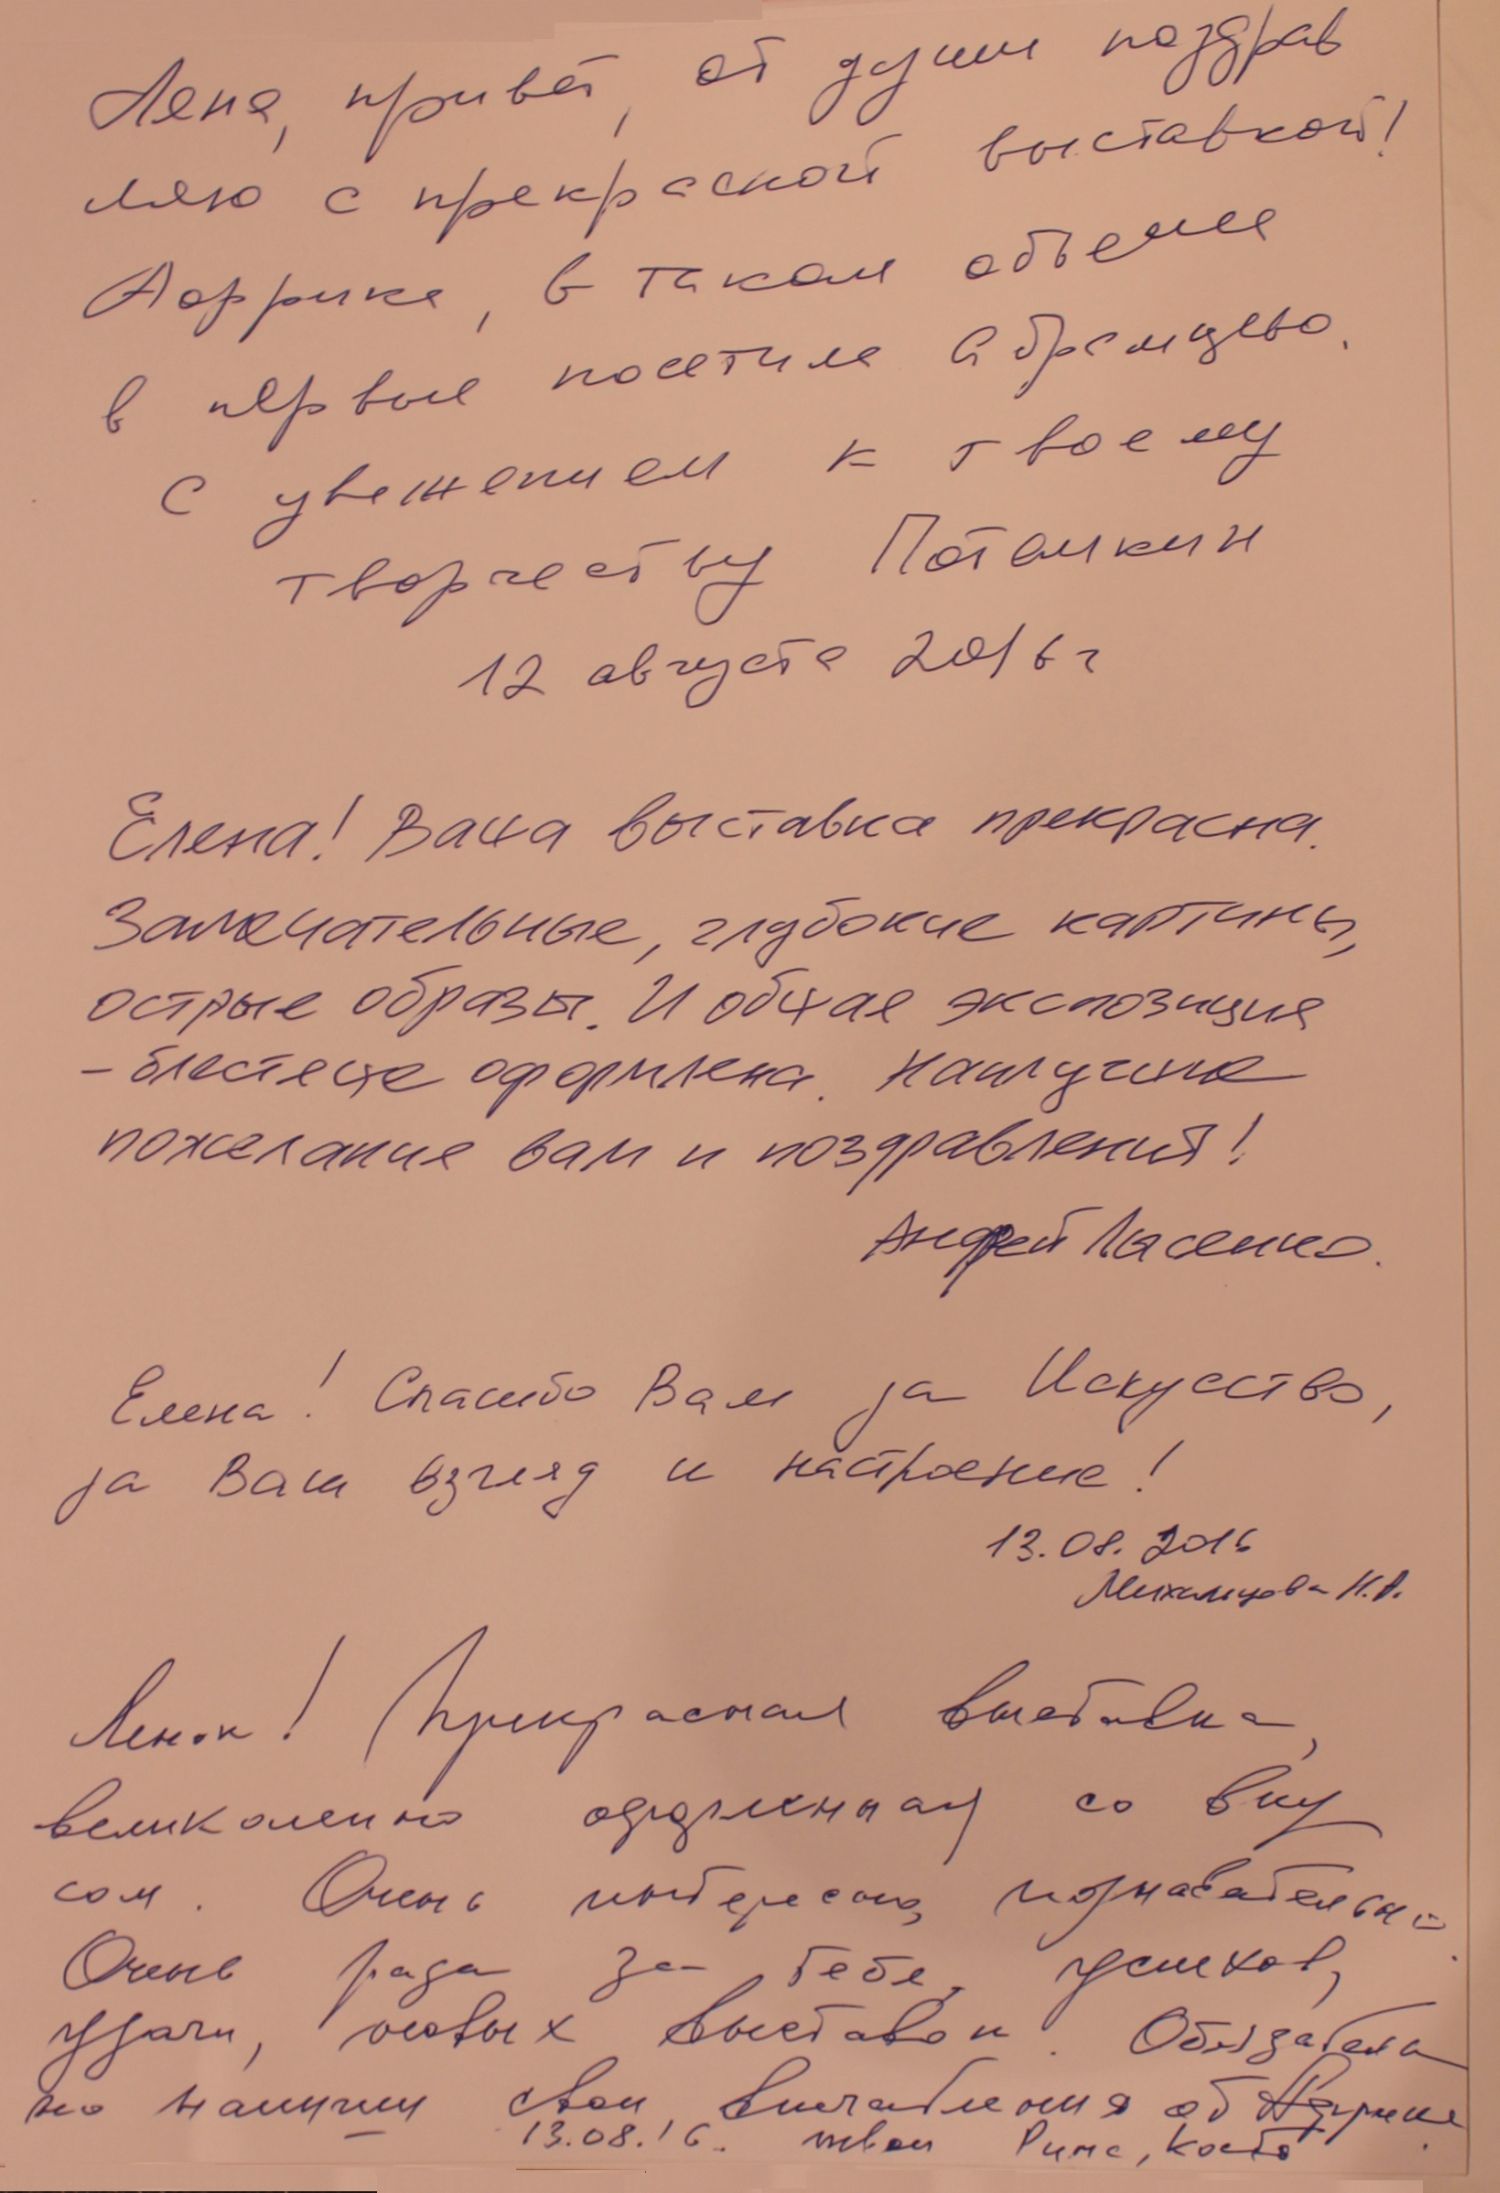 Лена, привет, от души поздрав
ляю с прекрасной выставкой!
Африка, в таком объеме
в первые посетила Абрамцево.
С уважением к твоему
творчеству Потемкин
12 августа 2016 г
Елена! Ваша выставка прекрасна.
Замечательные, глубокие картины,
острые образы. И общая экспозиция
- блестяще оформлена. Наилучшие
пожелания вам и поздравления!
Андрей Лысенко.
Елена! Спасибо Вам за Искусство,
за Ваш взгляд и настроение!
13.08.2016
Н.А.
Ленок! Прекрасная выставка,
великолепно оформленная со вку
сом. Очень интересно, познавательно.
Очень рада за тебя, успехов,
удачи, новых выставок. Обязатель
но напиши свои впечатления об Африке.
13.08.16. твои Римма, Костя